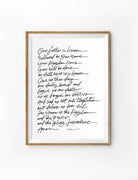 Our Father in Heaven
Hallowed be Your Name
Your Kingdom Come
Your will be done
on Earth as it is in heaven
Give us this day
our daily bread and
forgive us our debts
as we forgive our debtors
And lead us not into temptation
but deliver us from Evil
for Yours is the Kingdom
and the Power
and the Glory forevermore
Amen